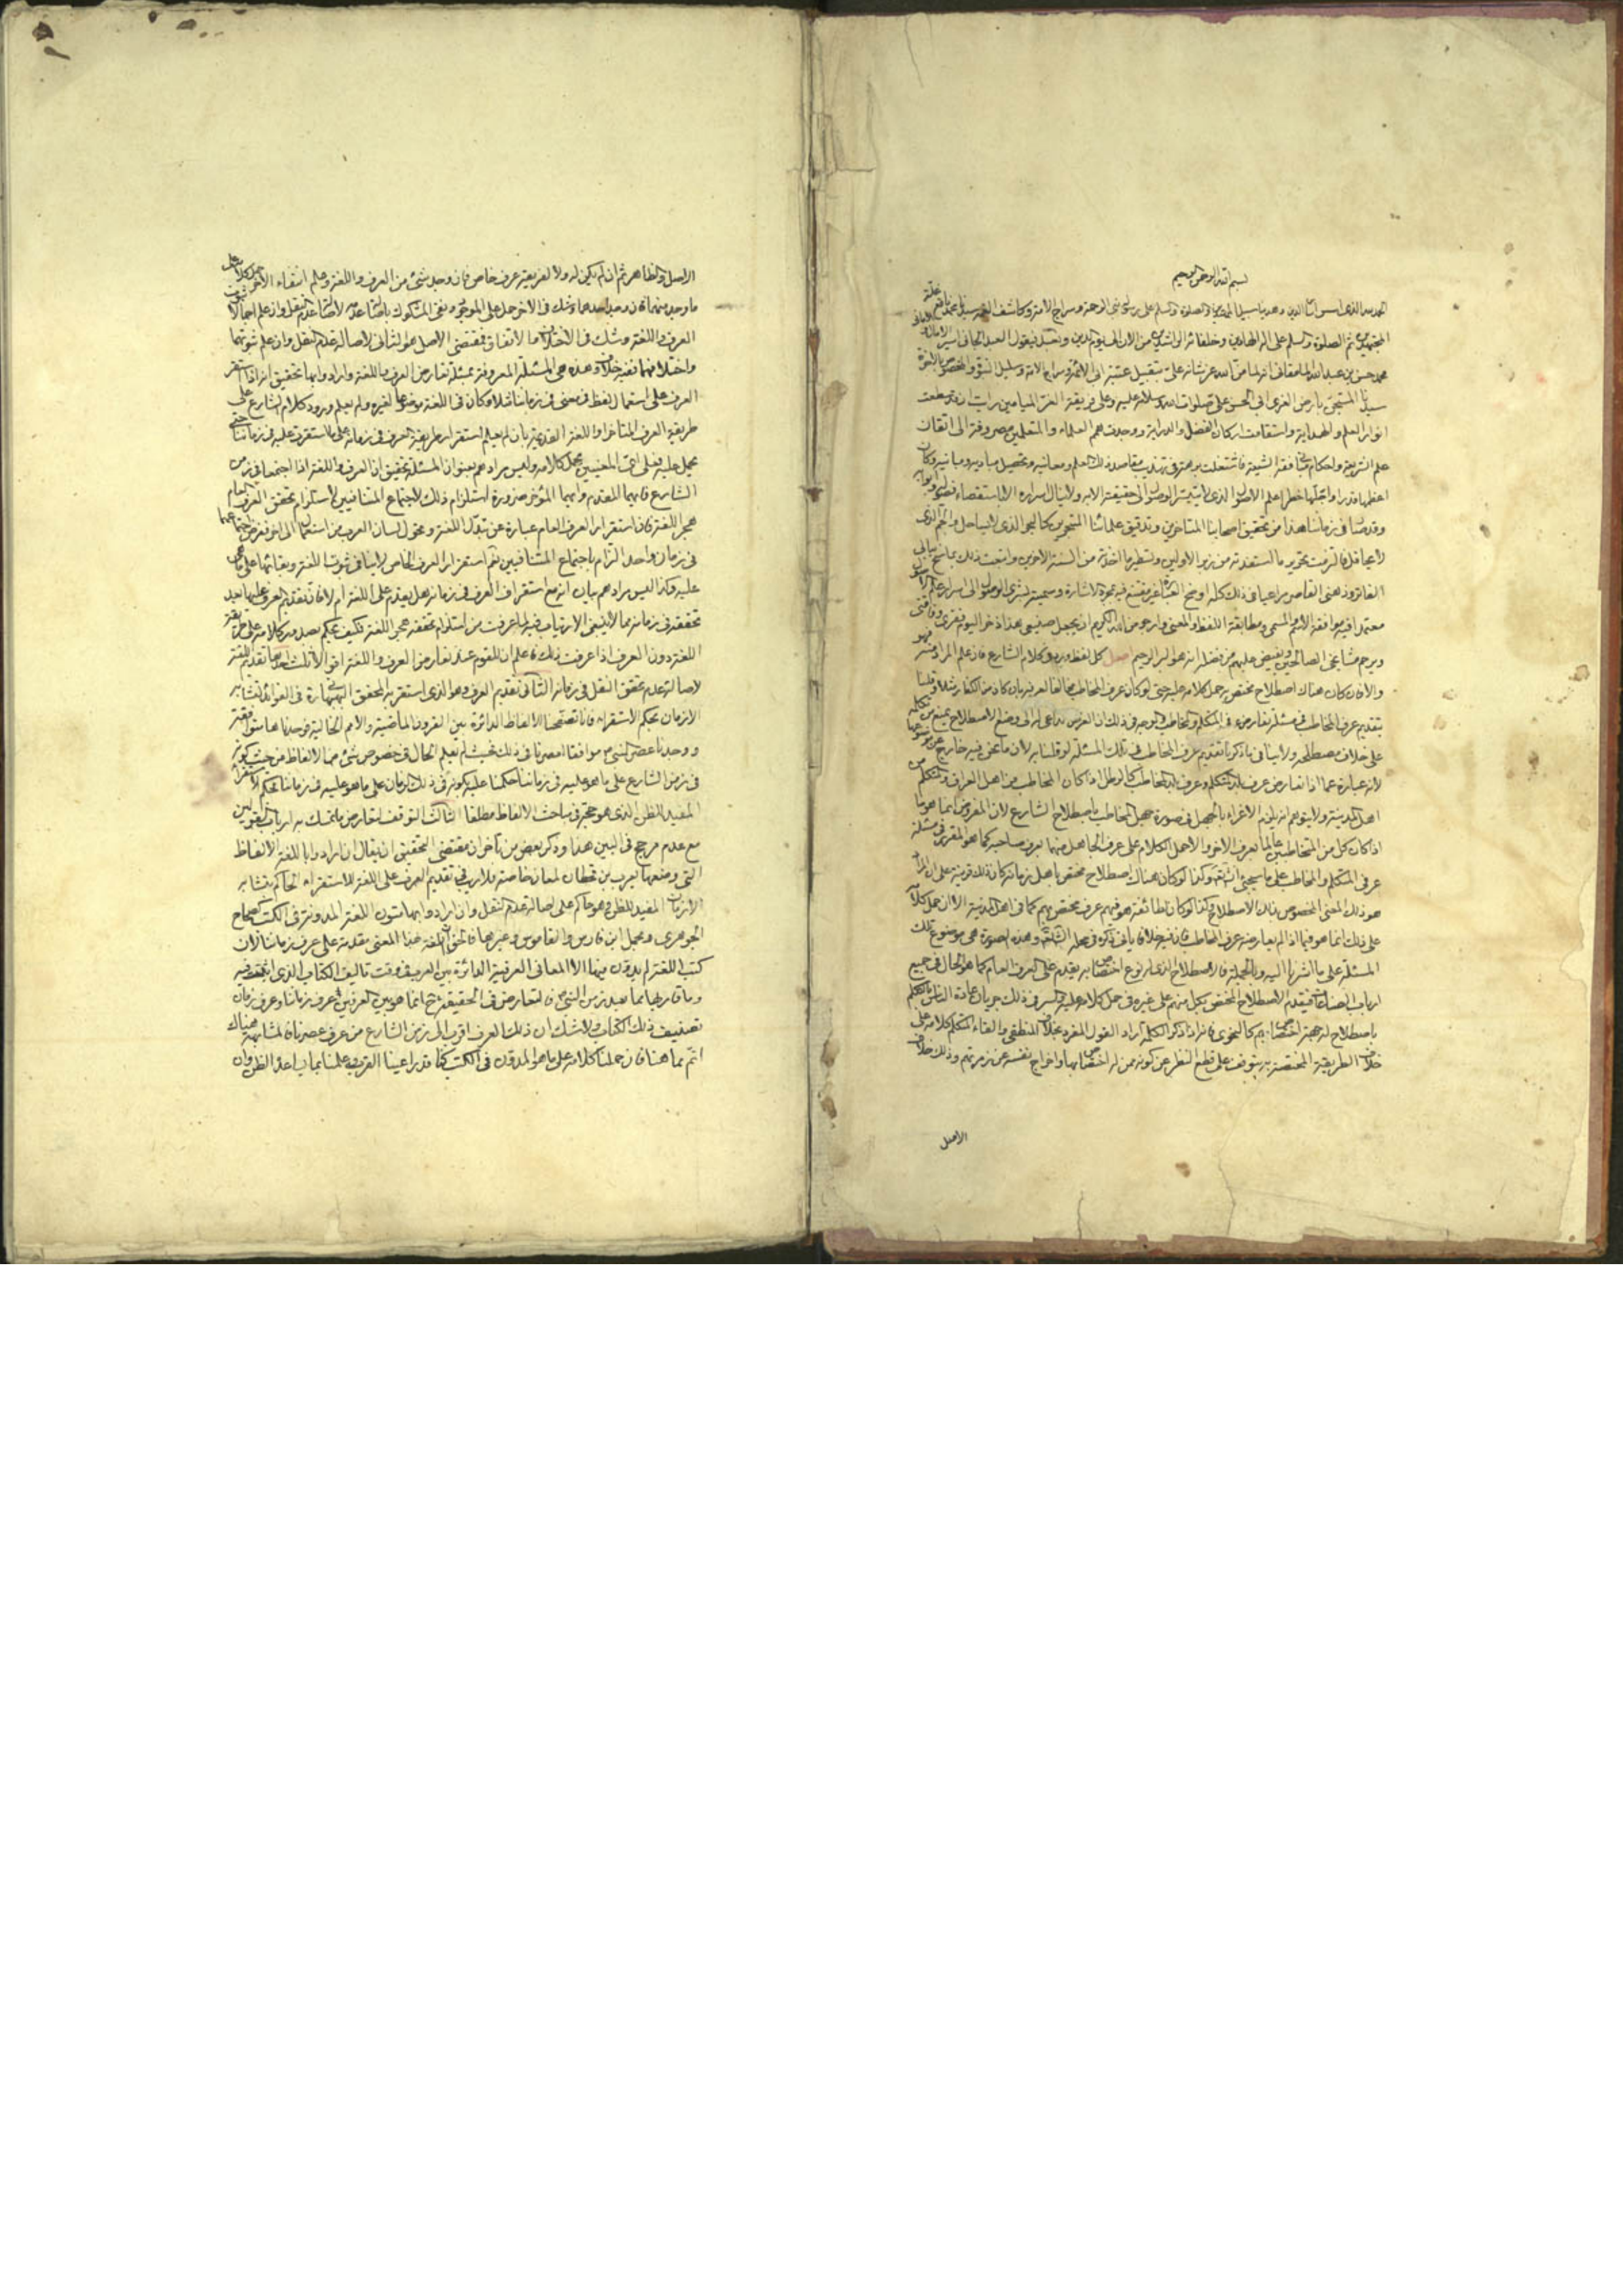 بسم الله الرحمن الرحيم
الحمد لله الذي اسس
المجتهدين ثم الصلوة والسلم على اله الهادين وخلفائه الراشدين من الان الى يوم الدين وبعد فيقول العبد الجاني اسير الامال و
محمد حسن بن عبد الله المامقاني انه لما من الله عز شانه على بتقبيل عتبة ابي الائمة وسراج الامة
سيدنا بارض الغري ابي الحسن على صلوات الله وسلامه عليه وعلى ذريته الغر الميامين رايت ان قد سطعت
انوار العلم والهداية واستقامت اركان الفضل والدراية ووجدت همم العلماء والمتعلمين مصروفة الى اتقان
علم الشريعة واحكام فقه الشيعة فاشتغلت برهة في تهذيب مقاصد ذلك العلم ومعانيه وتحصيل مباديه ومبانيه وكان
اعظمها قدرا واجلها خطرا علم الاصول الذي لا يتيسر الوصول الى حقيقته الا به ولا ينال اسراره الا باستقصاء فصوله وابوابه
وقد صار في زماننا هذا من تحقيق اصحابنا المتاخرين وتدقيق علمائنا المتبحرين كالبحر الذي لا ساحل له
فالتزمت بتحرير ما استفدته من زبر الاولين وتسطير ما اخذته من السنة الاخرين واتبعت ذلك بما سنح ببالي
الفاتر وذهني القاصر مراعيا في ذلك كله اوضح العبارة غير مقتنع فيه بمجرد الاشارة وسميته بشرى الوصول الى اسرار علم الاصول
معتمدا فيه موافقة الاسم المسمى ومطابقة اللفظ والمعنى وارجو من الله الكريم ان يجعل صنيعي هذا ذخرا ليوم فقري وفاقتي
ويرحم مشايخي الصالحين ويفيض عليهم من فضله انه هو البر الرحيم اصل كل لفظ ورد في كلام الشارع فان علم المراد منه فهو
والا فان كان هناك اصطلاح مختص به حمل كلامه عليه حتى لو كان عرف المخاطب مخالفا لعرفه بان كان من الكفار مثلا وقلنا
بتقديم عرف المخاطب في مسئلة تعارض عرف المتكلم والمخاطب والوجه في ذلك ان الغرض الداعي له الى وضع الاصطلاح يمنع من تكلمه
على خلاف مصطلحه ولا ينافي ما ذكرنا تقديم عرف المخاطب في تلك المسئلة لو قلنا به لان ما نحن فيه خارج عن موضوعها
لانه عبارة عما اذا تعارض عرف بلد المتكلم وعرف بلد المخاطب كالرطل اذا كان المخاطب من اهل العراق والمتكلم من
اهل المدينة ولا يتوهم انه يلزم الاغراء بالجهل في صورة جهل المخاطب باصطلاح الشارع لان المفروض انما هو ما
اذا كان كل من المتخاطبين عالما بعرف الاخر والا حمل الكلام على عرف الجاهل منهما بعرف صاحبه كما هو المقرر في مسئلة
عرفي المتكلم والمخاطب على ما سيجيء انشاء الله وكذا لو كان هناك اصطلاح مختص باهل زمانه كان ذلك قرينة على ان المراد
هو ذلك المعنى المخصوص بذلك الاصطلاح وكذا لو كان لطائفة هو فيهم عرف مختص بهم كما في اهل المدينة الا ان حمل كلامه
على ذلك انما هو فيما اذا لم يعارضه عرف المخاطب فان فيه خلافا ياتي ذكره في محله انشاء الله وهذه الصورة هي موضوع تلك
المسئلة على ما اشرنا اليه وبالجملة فالاصطلاح الذي له نوع اختصاص به يقدم على العرف العام كما هو الحال في جميع
ارباب الصناعات فيقدم الاصطلاح المختص بكل منهم على غيره في حمل كلامه عليه والسر في ذلك جريان عادة الناس بالتكلم
باصطلاح له جهة اختصاص بهم كالنحوي فانه اذا ذكر الكلمة اراد القول المفرد بخلاف المنطقي والقاء المتكلم كلامه على
خلاف الطريقة المختصة به يتوقف على قطع النظر عن كونه ممن له اختصاص بها واخراج نفسه عن زمرتهم وذلك خلاف
الاصل
الاصل والظاهر ثم ان لم يكن له ولا لفريقه عرف خاص فان وجد شيء من العرف واللغة وعلم انتفاء الاخر حمل كلامه على
ما وجد منهما وان وجد احدهما وشك في الاخر حمل على الموجود ونفي المشكوك باصالة عدمه لاصالة عدم النقل وان علم اجمالا ثبوت
العرف واللغة وشك في الاختلاف والاتفاق فمقتضى الاصل هو الثاني لاصالة عدم النقل وان علم ثبوتهما
واختلافهما ففيه خلاف وهذه هي المسئلة المعروفة بمسئلة تعارض العرف واللغة وارادوا بها تحقيق انه اذا استقر
العرف على استعمال لفظ في معنى في زماننا مثلا وكان في اللغة موضوعا لغيره ولم يعلم ورود كلام الشارع على
طريقة العرف المتاخر او اللغة القديمة بان لم يعلم استقرار طريقة العرف في زمانه على ما استقرت عليه في زماننا حتى
يحمل عليه فعلى اي المعنيين يحمل كلامه وليس مرادهم بعنوان المسئلة تحقيق ان العرف واللغة اذا اجتمعا في زمن
الشارع فايهما المقدم وايهما المؤخر ضرورة استلزام ذلك لاجتماع المتنافيين لاستلزام تحقق العرف العام
هجر اللغة فان استقرار العرف العام عبارة عن تبدل اللغة وتحول لسان العرب من استعمال الى اخر ففرض اجتماعهما
في زمان واحد التزام باجتماع المتنافيين نعم استقرار العرف الخاص لا ينافي ثبوت اللغة وبقائها على ما هي
عليه وكذا ليس مرادهم بيان انه مع استقرار العرف في زمانه هل يقدم على اللغة ام لا فان تقديم العرف عليها بعد
تحققه في زمانه مما لا ينبغي الارتياب فيه لما عرفت من استلزام تحققه هجر اللغة فكيف يحكم بصدور كلامه على طريقة
اللغة دون العرف اذا عرفت ذلك فاعلم ان للقوم عند تعارض العرف واللغة اقوالا ثلث احدها تقديم اللغة
لاصالة عدم تحقق النقل في زمانه الثاني تقديم العرف وهو الذي استقر به المحقق البهبهاني ره في الفوائد لتشابه
الازمان بحكم الاستقراء فانا تصفحنا الالفاظ الدائرة بين القرون الماضية والامم الخالية فوجدناها متوافقة
ووجدنا عصر النبي ص موافقا لعصرنا في ذلك بحيث لم يعلم الحال في خصوص شيء من الالفاظ من حيث كونه
في زمن الشارع على ما هو عليه في زماننا حكمنا عليه بكونه في ذلك الزمان على ما هو عليه في زماننا بحكم الاستقراء
المفيد للظن الذي هو حجة في مباحث الالفاظ مطلقا الثالث التوقف لتعارض ما تمسك به ارباب القولين
مع عدم مرجح في البين هذا وذكر بعض من تاخر ان مقتضى التحقيق ان يقال ان ارادوا باللغة الالفاظ
التي وضعها يعرب بن قحطان لمعان خاصة فلا ريب في تقديم العرف على اللغة للاستقراء الحاكم بتشابه
الازمان المفيد للظن فهو حاكم على اصالة عدم النقل وان ارادوا بها متون اللغة المدونة في الكتب كصحاح
الجوهري ومجمل ابن فارس والقاموس وغيرها فالحق ان اللغة بهذا المعنى مقدمة على عرف زماننا لان
كتب اللغة لم يدون فيها الا المعاني العرفية الدائرة بين العرب في وقت تاليف الكتاب الذي اثبتت فيه
وما قاربها مما بعد زمن النبي ص فالتعارض في الحقيقة ح انما هو بين العرفين عرف زماننا وعرف زمان
تصنيف ذلك الكتاب ولا شك ان ذلك العرف اقرب الى زمن الشارع من عرف عصرنا فالمشابهة هناك
اتم مما هنا فان حملنا كلامه على ما هو المدون في الكتب كنا قد راعينا القرب وعلمنا بما يساعد الظن وان